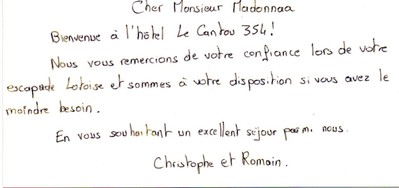 Cher Monsieur Madonnaa
Bienvenue à l'hôtel Le Cantou 354!
Nous vous remercions de votre confiance lors de votre
escapade Lotoise et sommes à votre disposition si vous avez le
moindre besoin.
En vous souhaitant un excellent séjour parmi nous.
Christophe et Romain.